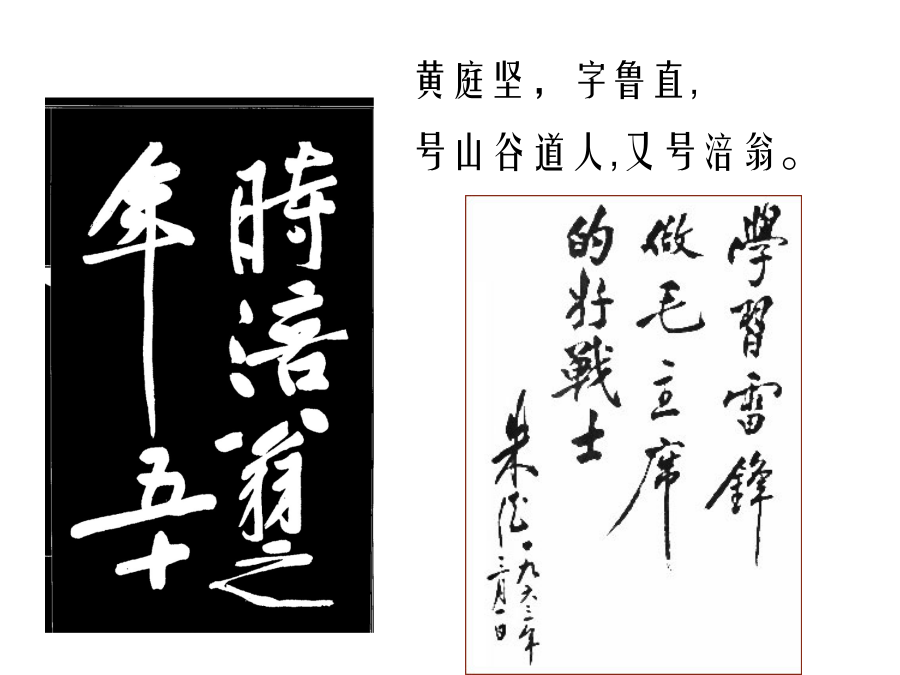 黄庭坚，字鲁直，
号山谷道人，又号涪翁。
時涪翁之
年五十
學習雷鋒
做毛主席
的好戰士
朱德
一九六三年
三月一日